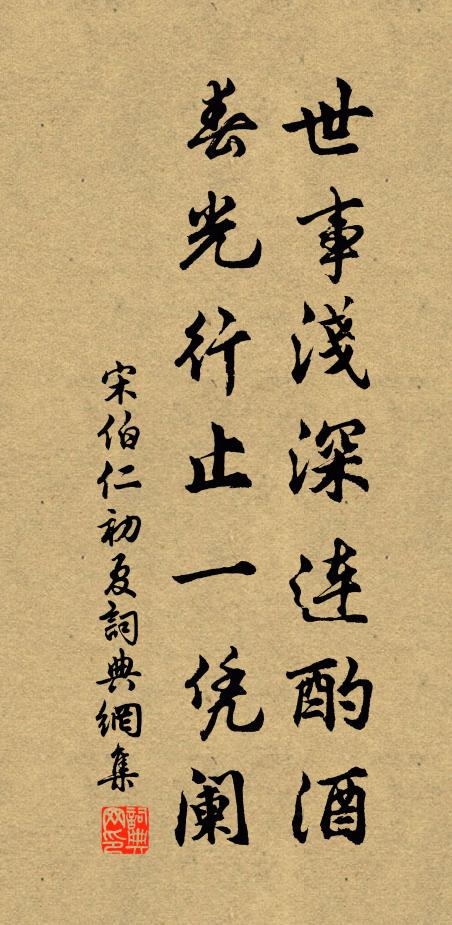 世事淺深连酌酒
春光行止一凭阑
宋伯仁初夏詞典網集
詞典网印